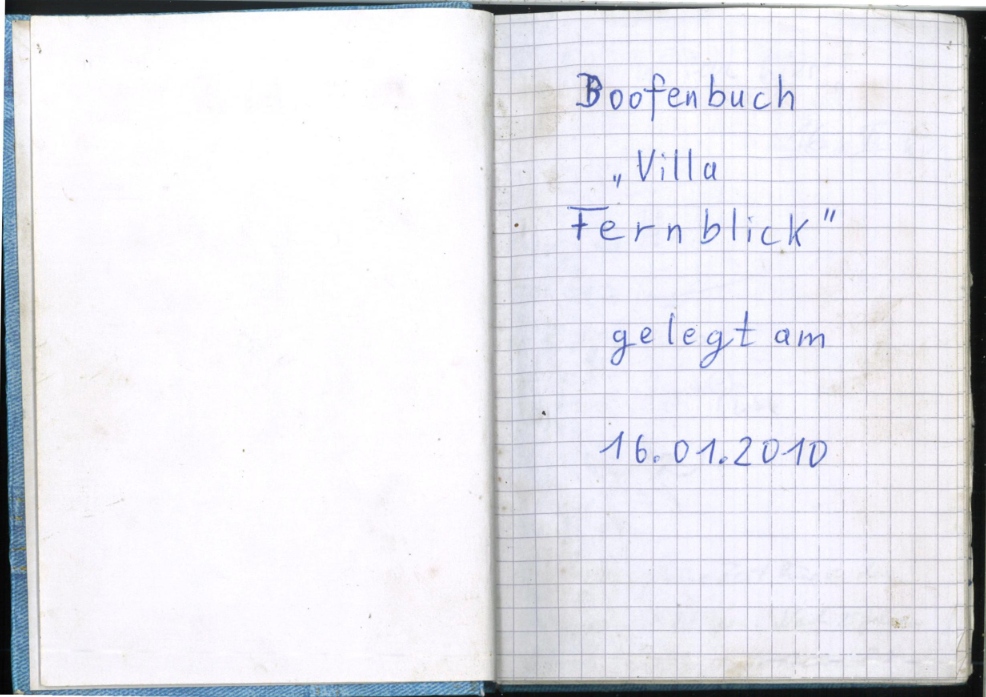 Boofenbuch
„Villa
Fernblick"
gelegt am
16.01.2010